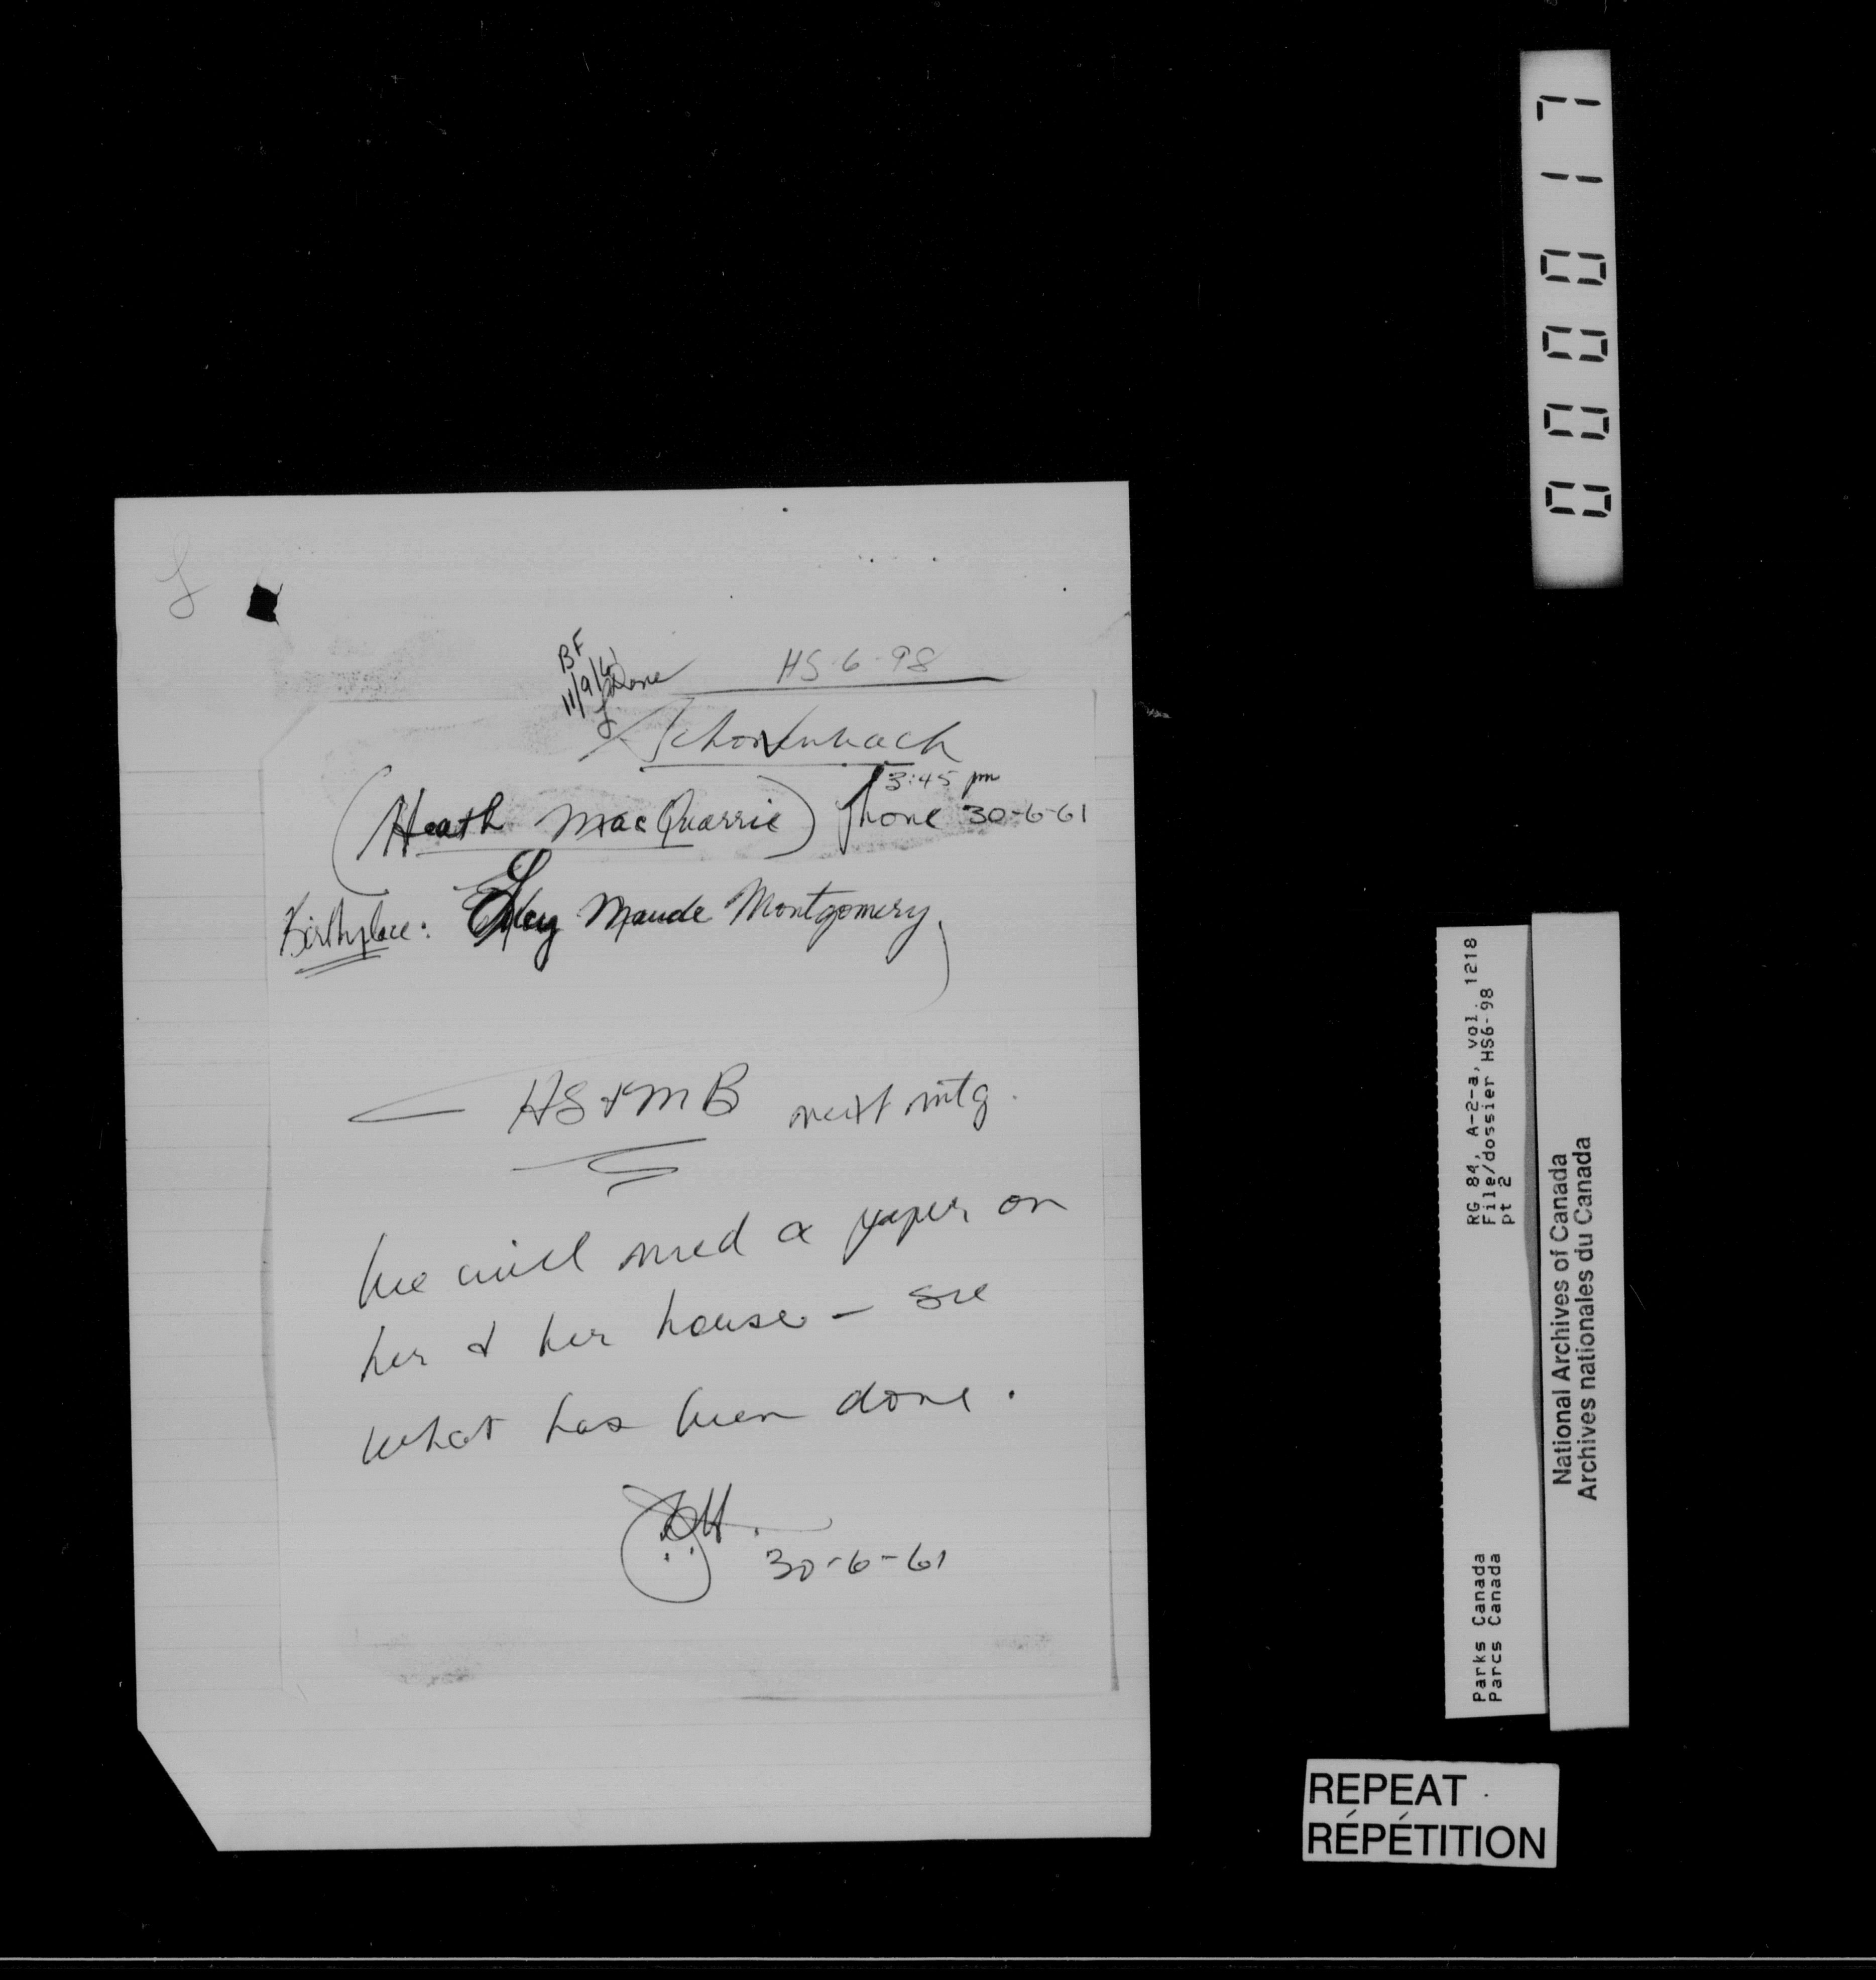 BF
11/9/61
Done
HS-6-98
Schonenbach
3:45 pm
(Heath MacQuarrie) Phone 30-6-61
Birthplace: Lucy Maude Montgomery
HS+MB next mtg.
We will need a paper on
her & her house – see
what has been done.
30-6-61
000017
RG 84, A-2-a, vol. 1218
File/dossier HS6-98
pt 2
Parks Canada
Parcs Canada
National Archives of Canada
Archives nationales du Canada
REPEAT
RÉPÉTITION